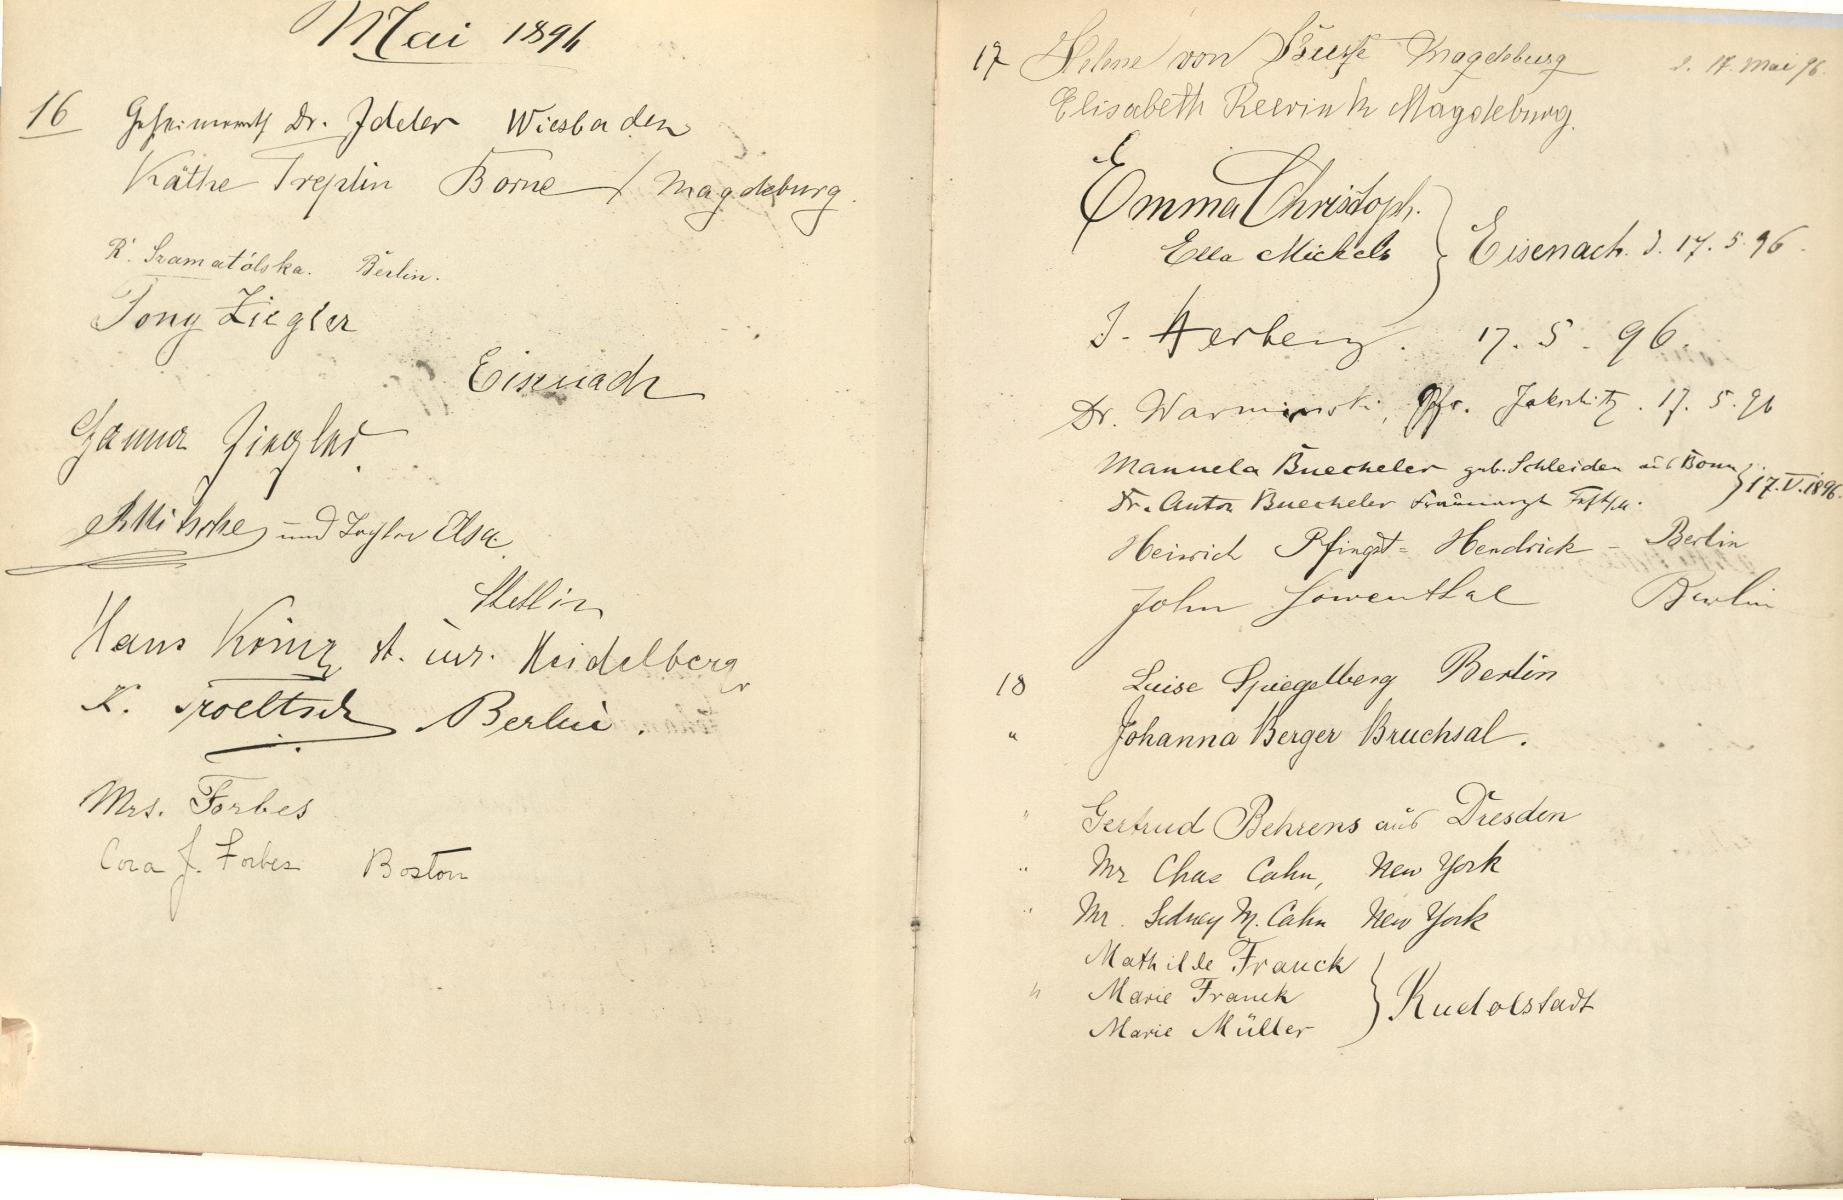 Mai 1896
16 Geheimrath Dr. Ideler Wiesbaden
Käthe Treplin Borne / Magdeburg.
R. Szamatólska. Berlin.
Tony Ziegler
Eisenach
Hanna Ziegler.
und Tochter Elsa.
Stettin
Hans König st. iur. Heidelberg
K. Troeltsch Berlin.
Mrs. Forbes
Cora J. Forbes Boston
17 Helene von Magdeburg d. 17. Mai 96.
Elisabeth Magdeburg.
Emma Christoph.
Ella Michels } Eisenach. d. 17. 5. 96.
J. Herberg. 17. 5. 96.
Dr. Warminski, Pfr. Jakschitz. 17. 5. 96
Manuela Buecheler geb. Schleiden aus Bonn } 17. V. 1896.
Dr. Anton Buecheler Frauenarzt Frkft/M.
Heinrich Pfingst= Hendrick - Berlin
John Lowenthal Berlin
18 Luise Spiegelberg Berlin
" Johanna Berger Bruchsal.
" Gertrud Behrens aus Dresden
" Mr Chas Cahn, New York
" Mr. Sidney M. Cahn New York
Mathilde Franck
" Marie Franck } Rudolstadt
Marie Müller